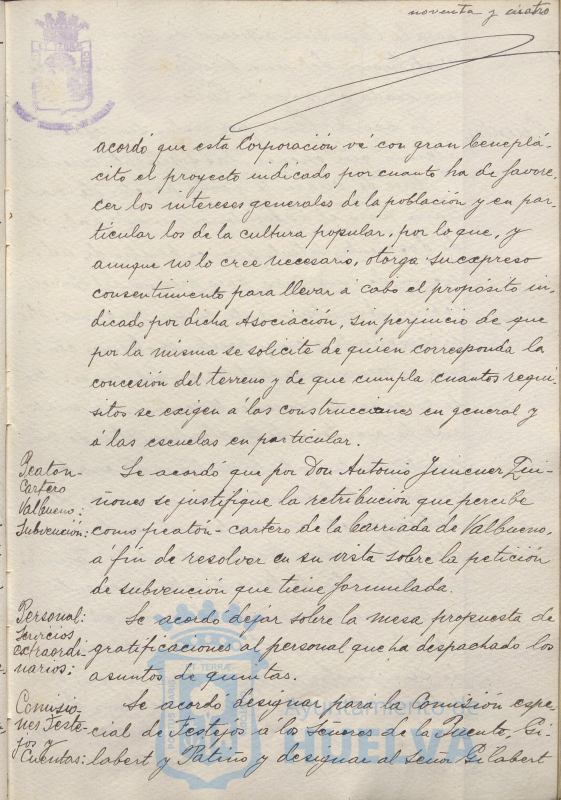 noventa y cuatro
acordó que esta Corporación vé con gran beneplá-
cito el proyecto indicado por cuanto ha de favore-
cer los intereses generales de la población y en par-
ticular los de la cultura popular, por lo que, y
aunque no lo cree necesario, otorga su expreso
consentimiento para llevar á cabo el propósito in-
dicado por dicha Asociación, sin perjuicio de que
por la misma se solicite de quien corresponda la
concesión del terreno y de que cumpla cuantos requi-
sitos se exigen á las construcciones en general y
á las escuelas en particular.
Peaton-
cartero
Valbueno:
Subvención:
Se acordó que por Don Antonio Jimenez Qui-
ñones se justifique la retribución que percibe
como peatón-cartero de la barriada de Valbueno,
á fin de resolver en su vista sobre la petición
de subvención que tiene formulada.
Personal:
Servicios
extraordi-
narios:
Se acordó dejar sobre la mesa propuesta de
gratificaciones al personal que ha despachado los
asuntos de quintas.
Comisio-
nes Feste-
jos y
Cuentas:
Se acordó designar para la Comisión espe-
cial de Festejos a los Señores de la Puente, Gi-
labert y Patiño y designar al Señor Gilabert
Ayuntamiento de
HUELVA